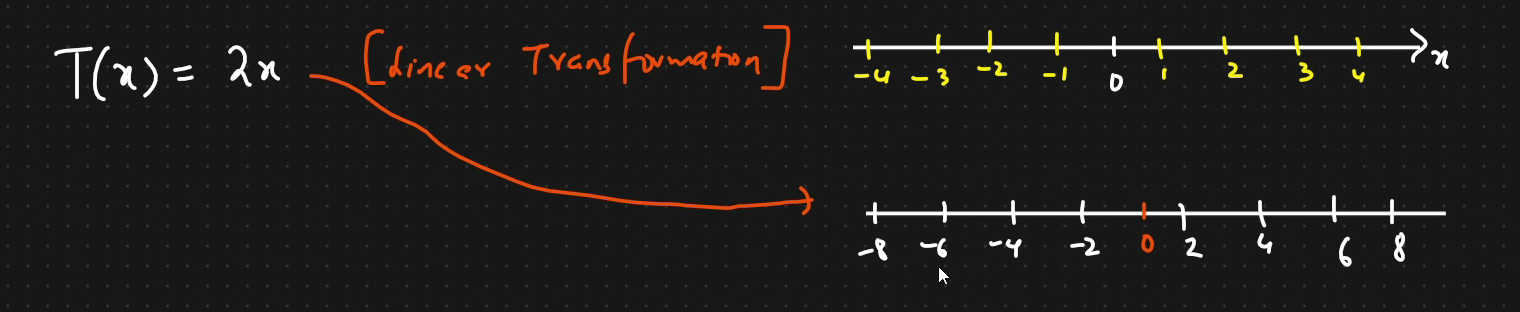 T(x) = 2x [Linear Transformation]
-4 -3 -2 -1 0 1 2 3 4 x
-8 -6 -4 -2 0 2 4 6 8